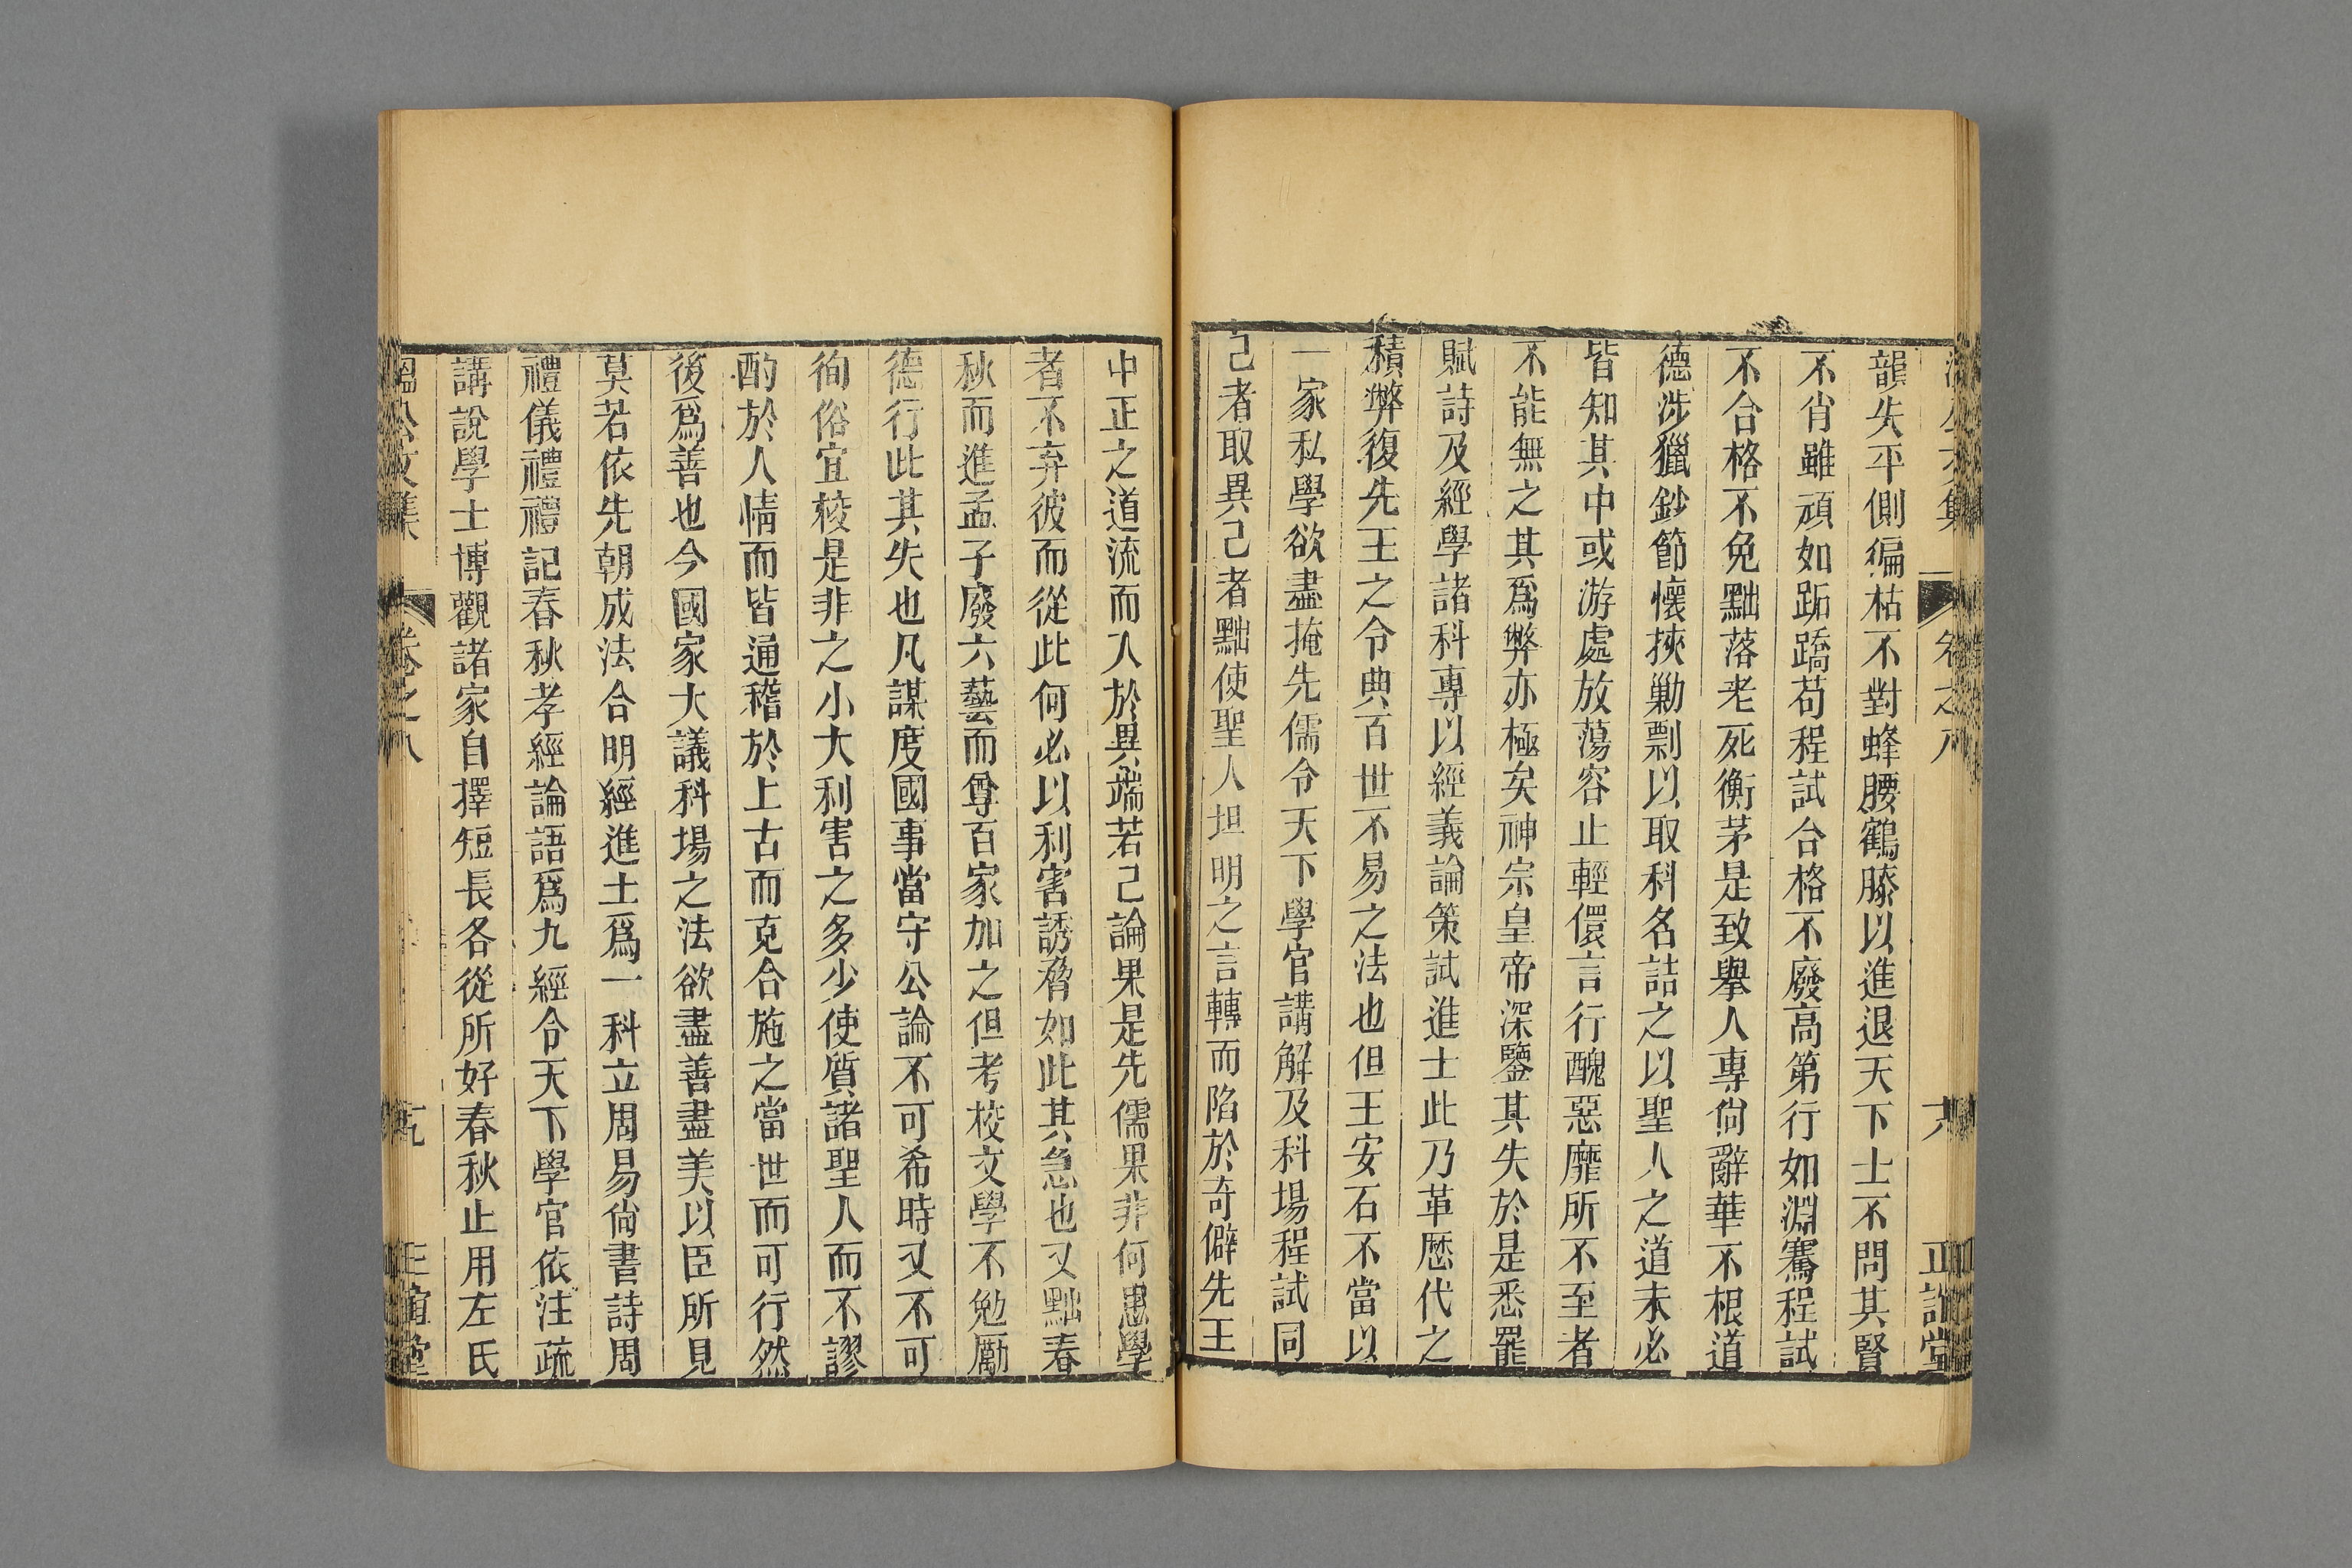 韻失平側偏枯不對蜂腰鶴膝以進退天下士不問其賢
不肖雖頑如跖蹻苟程試合格不廢高第行如淵騫程試
不合格不免黜落老死衡茅是致舉人專尚辭華不根道
德涉獵鈔節懷挾勦剽以取科名詰之以聖人之道未必
皆知其中或游處放蕩容止輕儇言行醜惡靡所不至者
不能無之其爲弊亦極矣神宗皇帝深鑒其失於是悉罷
賦詩及經學諸科專以經義論策試進士此乃革歷代之
積弊復先王之令典百世不易之法也但王安石不當以
一家私學欲盡掩先儒令天下學官講解及科場程試同
己者取異己者黜使聖人坦明之言轉而陷於奇僻先王
中正之道流而入於異端若己論果是先儒果非何患學
者不弃彼而從此何必以利害誘脅如此其急也又黜春
秋而進孟子廢六藝而尊百家加之但考校文學不勉勵
德行此其失也凡謀度國事當守公論不可希時又不可
徇俗宜校是非之小大利害之多少使質諸聖人而不謬
酌於人情而皆通稽於上古而克合施之當世而可行然
後爲善也今國家大議科場之法欲盡善盡美以臣所見
莫若依先朝成法合明經進士爲一科立周易尚書詩周
禮儀禮禮記春秋孝經論語爲九經令天下學官依注疏
講說學士博觀諸家自擇短長各從所好春秋止用左氏
溫公文集 卷之八 正誼堂